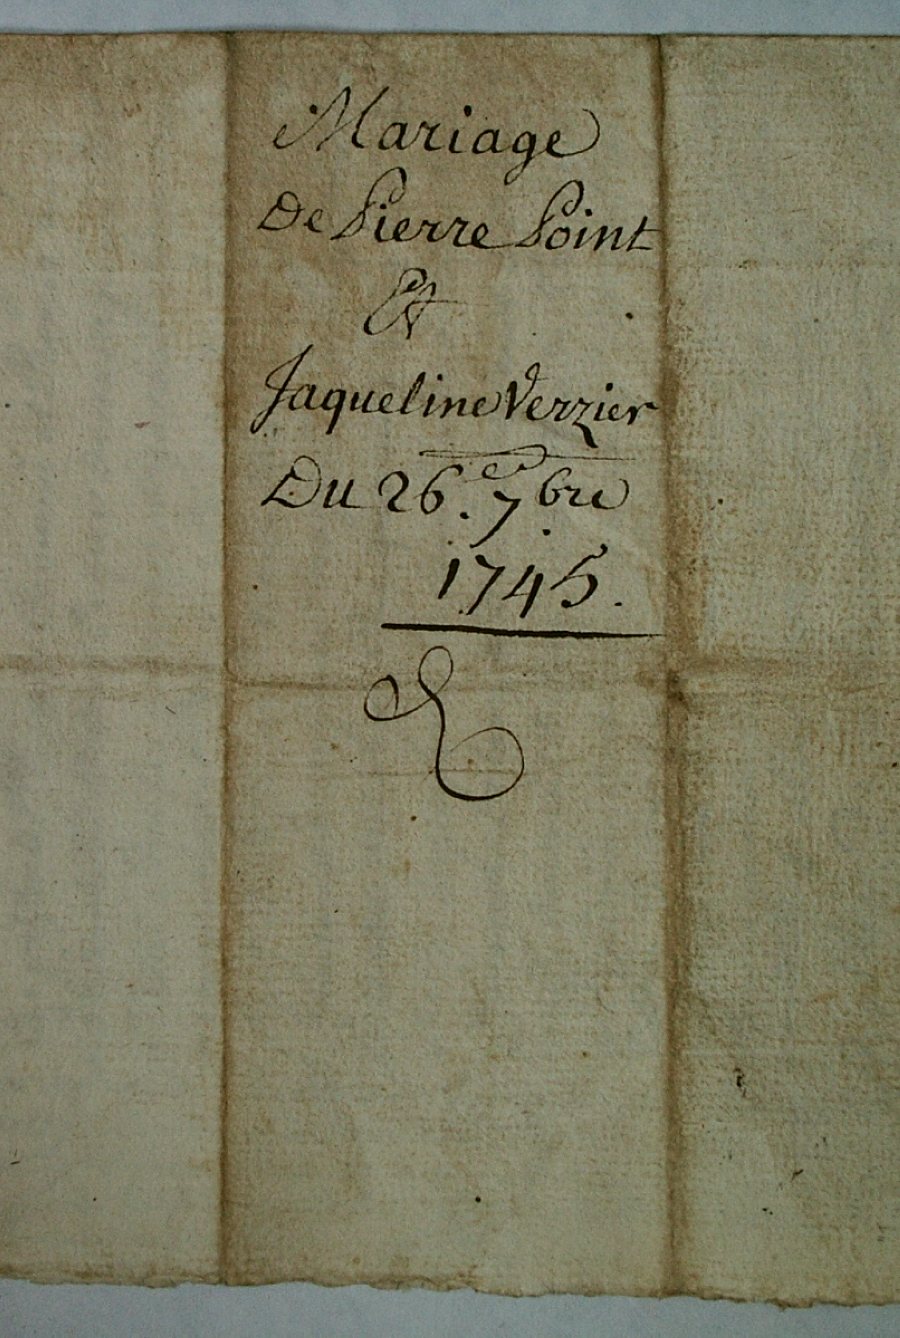 Mariage
De Pierre Point
Et
Jaqueline Verzier
Du 26. 7bre
1745.